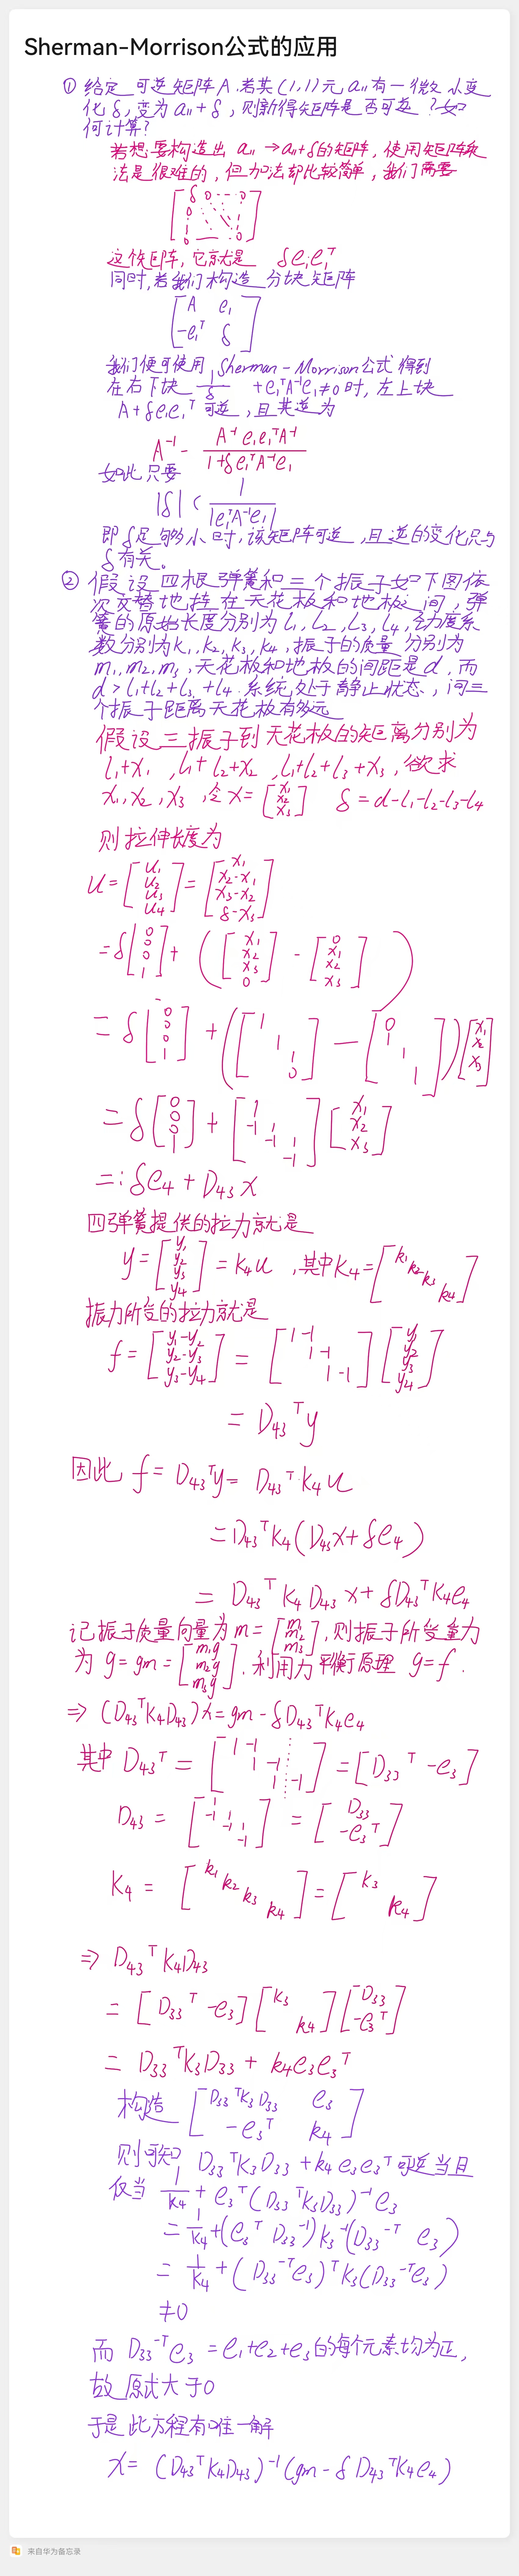 Sherman-Morrison公式的应用
① 给定可逆矩阵A.若其(1,1)元a₁₁有一微小变
化δ,变为a₁₁+δ,则新得矩阵是否可逆?如
何计算?
若想要构造出 a₁₁→a₁₁+δ的矩阵,使用矩阵乘
法是很难的,但加法却比较简单,我们需要
[δ 0 ⋯ 0
0 ⋱ ⋮
⋮ ⋱ ⋮
0 ⋯ 0]
这个矩阵,它就是 δe₁e₁ᵀ
同时,若我们构造分块矩阵
[A e₁
-e₁ᵀ δ]
我们便可使用Sherman-Morrison公式得到
在右下块 1/δ + e₁ᵀA⁻¹e₁≠0时,左上块
A+δe₁e₁ᵀ可逆,且其逆为
A⁻¹ - A⁻¹e₁e₁ᵀA⁻¹ / 1+δe₁ᵀA⁻¹e₁
如此只要
|δ| < 1/|e₁ᵀA⁻¹e₁|
即δ足够小时,该矩阵可逆,且逆的变化只与
δ有关。
② 假设四根弹簧和三个振子如下图依
次交替地挂在天花板和地板之间,弹
簧的原始长度分别为l₁,l₂,l₃,l₄,劲度系
数分别为k₁,k₂,k₃,k₄,振子的质量分别为
m₁,m₂,m₃,天花板和地板的间距是d,而
d>l₁+l₂+l₃+l₄.系统处于静止状态,问三
个振子距离天花板有多远
假设三振子到天花板的距离分别为
l₁+x₁,l₁+l₂+x₂,l₁+l₂+l₃+x₃,欲求
x₁,x₂,x₃,令x=[x₁ x₂ x₃] δ=d-l₁-l₂-l₃-l₄
则拉伸长度为
u=[u₁ u₂ u₃ u₄]=[x₁ x₂-x₁ x₃-x₂ δ-x₃]
=δ[0 0 0 1]+([x₁ x₂ x₃ 0]-[0 x₁ x₂ x₃])
=δ[0 0 0 1]+([1 1 1 0]-[0 1 1 1])[x₁ x₂ x₃]
=δ[0 0 0 1]+[1 -1 1 -1 1 -1][x₁ x₂ x₃]
=:δe₄+D₄₃x
四弹簧提供的拉力就是
y=[y₁ y₂ y₃ y₄]=K₄u,其中K₄=[k₁ k₂ k₃ k₄]
振力所受的拉力就是
f=[y₁-y₂ y₂-y₃ y₃-y₄]=[1 -1 1 -1 1 -1][y₁ y₂ y₃ y₄]
=D₄₃ᵀy
因此 f=D₄₃ᵀy=D₄₃ᵀK₄u
=D₄₃ᵀK₄(D₄₃x+δe₄)
=D₄₃ᵀK₄D₄₃x+δD₄₃ᵀK₄e₄
记振子质量向量为m=[m₁ m₂ m₃],则振子所受重力
为g=gm=[m₁g m₂g m₃g].利用力平衡原理 g=f.
⇒(D₄₃ᵀK₄D₄₃)x=gm-δD₄₃ᵀK₄e₄
其中D₄₃ᵀ=[1 -1 1 -1 1 -1]=[D₃₃ᵀ -e₃]
D₄₃=[1 -1 1 -1 1 -1]=[D₃₃ -e₃ᵀ]
K₄=[k₁ k₂ k₃ k₄]=[K₃ k₄]
⇒D₄₃ᵀK₄D₄₃
=[D₃₃ᵀ -e₃][K₃ k₄][D₃₃ -e₃ᵀ]
=D₃₃ᵀK₃D₃₃+k₄e₃e₃ᵀ
构造[D₃₃ᵀK₃D₃₃ e₃
-e₃ᵀ k₄]
则可知 D₃₃ᵀK₃D₃₃+k₄e₃e₃ᵀ可逆当且
仅当 1/k₄+e₃ᵀ(D₃₃ᵀK₃D₃₃)⁻¹e₃
=1/k₄+(e₃ᵀD₃₃⁻¹)K₃⁻¹(D₃₃⁻ᵀe₃)
=1/k₄+(D₃₃⁻ᵀe₃)ᵀK₃(D₃₃⁻ᵀe₃)
≠0
而 D₃₃⁻ᵀe₃=e₁+e₂+e₃的每个元素均为正,
故原式大于0
于是此方程有唯一解
x=(D₄₃ᵀK₄D₄₃)⁻¹(gm-δD₄₃ᵀK₄e₄)
来自华为备忘录